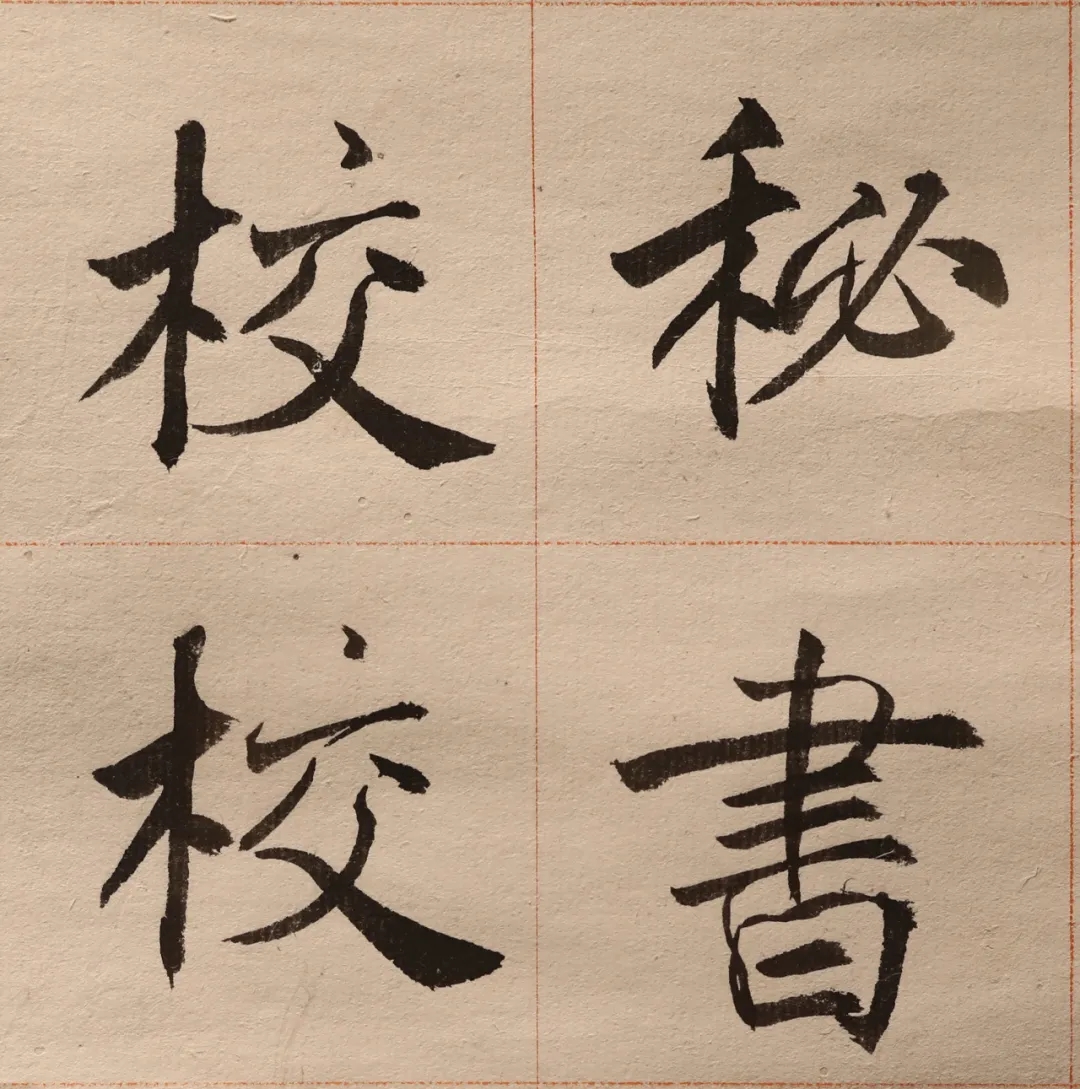 秘書
校校